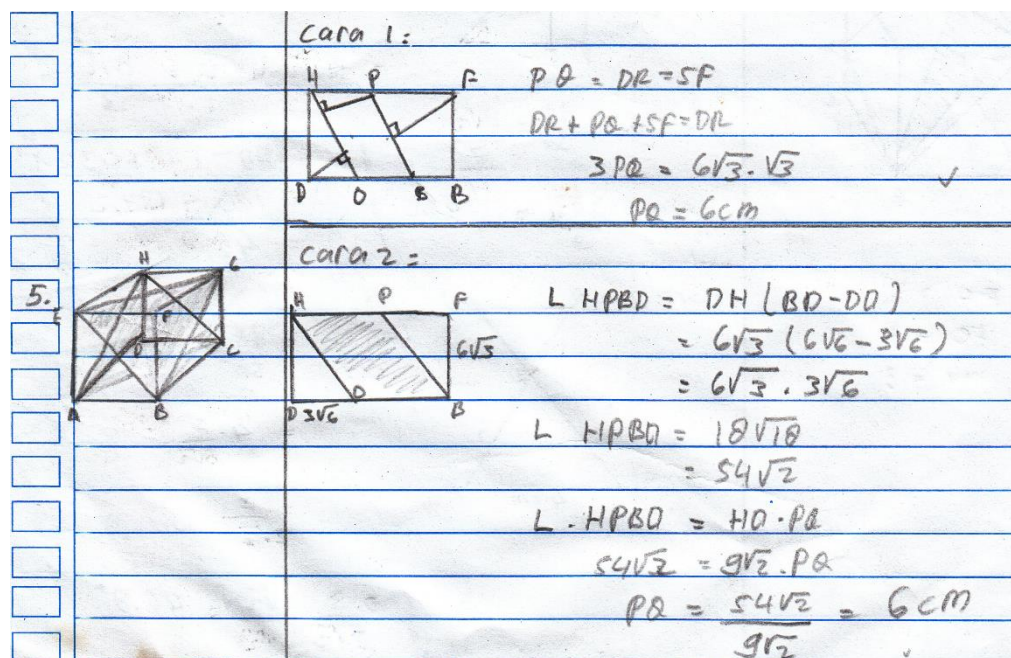 Cara 1:
H P F
D O B B
PQ = DR = SF
DR + PQ + SF = DR
3PQ = 6√3 . √3
PQ = 6cm
5.
H G
E F
D C
A B
Cara 2 =
H P F
6√3
D 3√6 O B
L HPBD = DH (BD-DO)
= 6√3 (6√6 - 3√6)
= 6√3 . 3√6
L HPBO = 18√18
= 54√2
L . HPBO = HO . PQ
54√2 = 9√2 . PQ
PQ = 54√2 / 9√2 = 6 cm